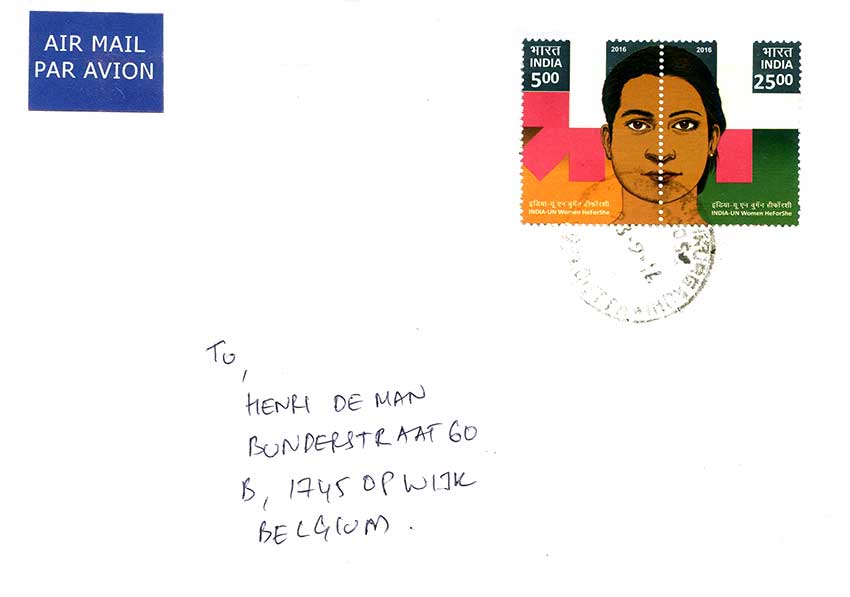 AIR MAIL
PAR AVION
भारत
INDIA
500
2016
2016
भारत
INDIA
2500
इंडिया-यू एन वुमॅन हीफॉरशी
INDIA-UN Women HeForShe
इंडिया-यू एन वुमॅन हीफॉरशी
INDIA-UN Women HeForShe
To,
HENRI DE MAN
BUNDERSTRAAT 60
B, 1745 OPWIJK
BELGIUM.